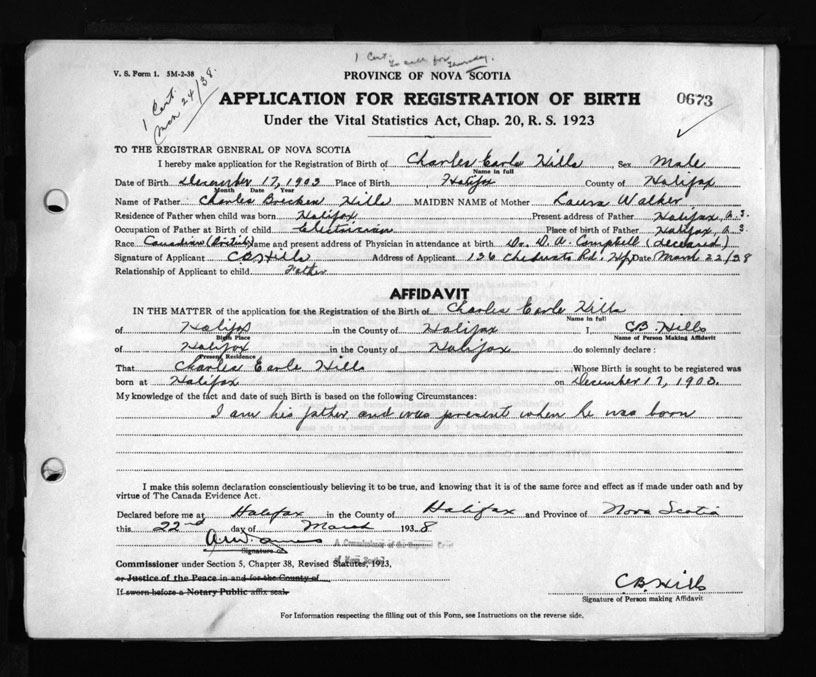 1 Cert. to call for Thursday.
V. S. Form 1. 5M-2-38
PROVINCE OF NOVA SCOTIA
1 Cert.
Mar 24/38.
APPLICATION FOR REGISTRATION OF BIRTH 0673
Under the Vital Statistics Act, Chap. 20, R. S. 1923
TO THE REGISTRAR GENERAL OF NOVA SCOTIA
I hereby make application for the Registration of Birth of Charles Earle Hills, Sex Male
Name in full
Date of Birth December 17, 1903 Place of Birth, Halifax County of Halifax
Month Date Year
Name of Father Charles Brecken Hills MAIDEN NAME of Mother Laura Walker
Residence of Father when child was born Halifax Present address of Father Halifax,
Occupation of Father at Birth of child Electrician Place of birth of Father Halifax,
Race Canadian (British) Name and present address of Physician in attendance at birth Dr. D. A. Campbell (deceased)
Signature of Applicant CB Hills Address of Applicant 136 Rd. Hfx Date Mar 22/38
Relationship of Applicant to child Father
AFFIDAVIT
IN THE MATTER of the application for the Registration of the Birth of Charles Earle Hills
Name in full
of Halifax in the County of Halifax I, CB. Hills
Birth Place Name of Person Making Affidavit
of Halifax in the County of Halifax do solemnly declare :
Present Residence
That Charles Earle Hills Whose Birth is sought to be registered was
born at Halifax on December 17, 1903.
My knowledge of the fact and date of such Birth is based on the following Circumstances:
I am his father and was present when he was born
I make this solemn declaration conscientiously believing it to be true, and knowing that it is of the same force and effect as if made under oath and by
virtue of The Canada Evidence Act.
Declared before me at Halifax in the County of Halifax and Province of Nova Scotia
this 22nd day of March 1938
A Commissioner of the Supreme Court
Signature of
of Nova Scotia
Commissioner under Section 5, Chapter 38, Revised Statutes, 1923,
or Justice of the Peace in and for the County of
If sworn before a Notary Public affix seal.
CB Hills
Signature of Person making Affidavit
For Information respecting the filling out of this Form, see Instructions on the reverse side.